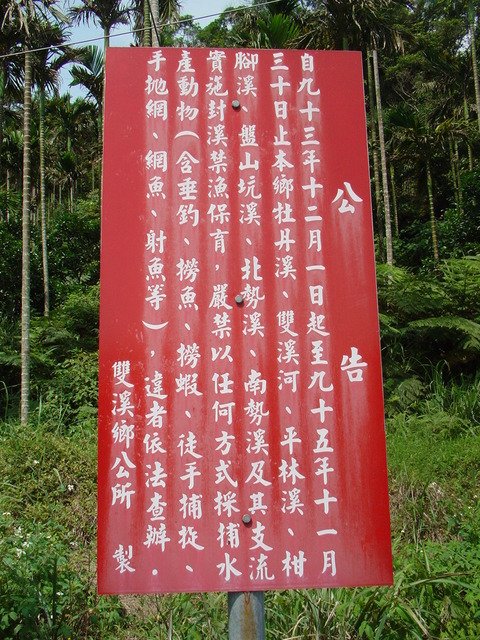 公告
自九十三年十二月一日起至九十五年十一月
三十日止本鄉牡丹溪、雙溪河、平林溪、柑
腳溪、盤山坑溪、北勢溪、南勢溪及其支流
實施封溪禁漁保育，嚴禁以任何方式採捕水
產動物（含垂釣、撈魚、撈蝦、徒手捕捉、
手拋網、網魚、射魚等），違者依法查辦．
雙溪鄉公所 製